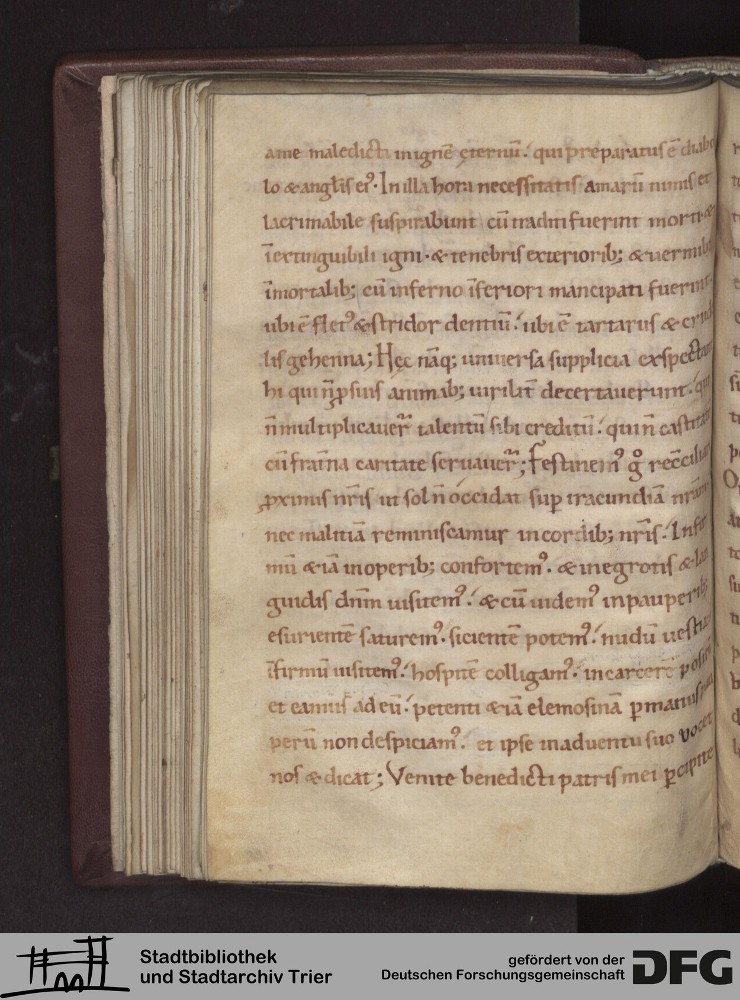 ame maledicti inignē ęternū. qui preparatus ē diabo
lo & angl̄is ei᾿. In illa hora necessitatis amarū nimis et
lacrimabile suspirabunt cū traditi fuerint morti &
īextinguibili igni. & tenebris exteriorib; & uermib;
īmortalib; cū inferno īferiori mancipati fuerint.
ubi ē flet᾿ & stridor dentiū. ubi ē tartarus & crude
lis gehenna; Hęc nāq; uniuersa supplicia exspectant
hi qui n̄ ꝓ suis animab; uirilit̄ decertauerunt. qui
n̄ multiplicauer̄ talentū sibi creditū. qui n̄ castitatē
cū frat̄na caritate seruauer̄; Festinem᾿ g̊ recc̄iliari
ꝓximis nr̄is ut sol n̄ occidat sup iracundiā nr̄am
nec malitiā reminiscamur in cordib; nr̄is. Infir
mū & iā in operib; confortem᾿. & in egrotis & lan
guidis dn̄m uisitem᾿. & cū uidem᾿ in pauperib;
esurientē saturem᾿. sicientē potem᾿. nudū uestiam᾿
īfirmū uisitem᾿. hospitē colligam᾿. in carcere positū
et eamus ad eū. petenti & iā elemosinā p manus pau
perū non despiciam᾿. et ipse in aduentu suo uocet
nos & dicat; Venite benedicti patris mei pcipite
Stadtbibliothek
und Stadtarchiv Trier
gefördert von der
Deutschen Forschungsgemeinschaft
DFG